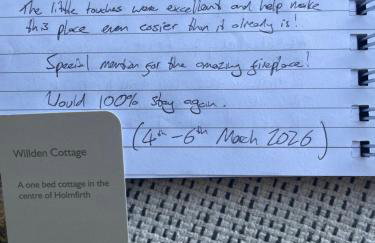 The little touches were excellent and help make
this place even easier than it already is!
Special mention for the amazing fireplace!
Would 100% stay again.
(4th - 6th March 2026)
Willden Cottage
A one bed cottage in the
centre of Holmfirth